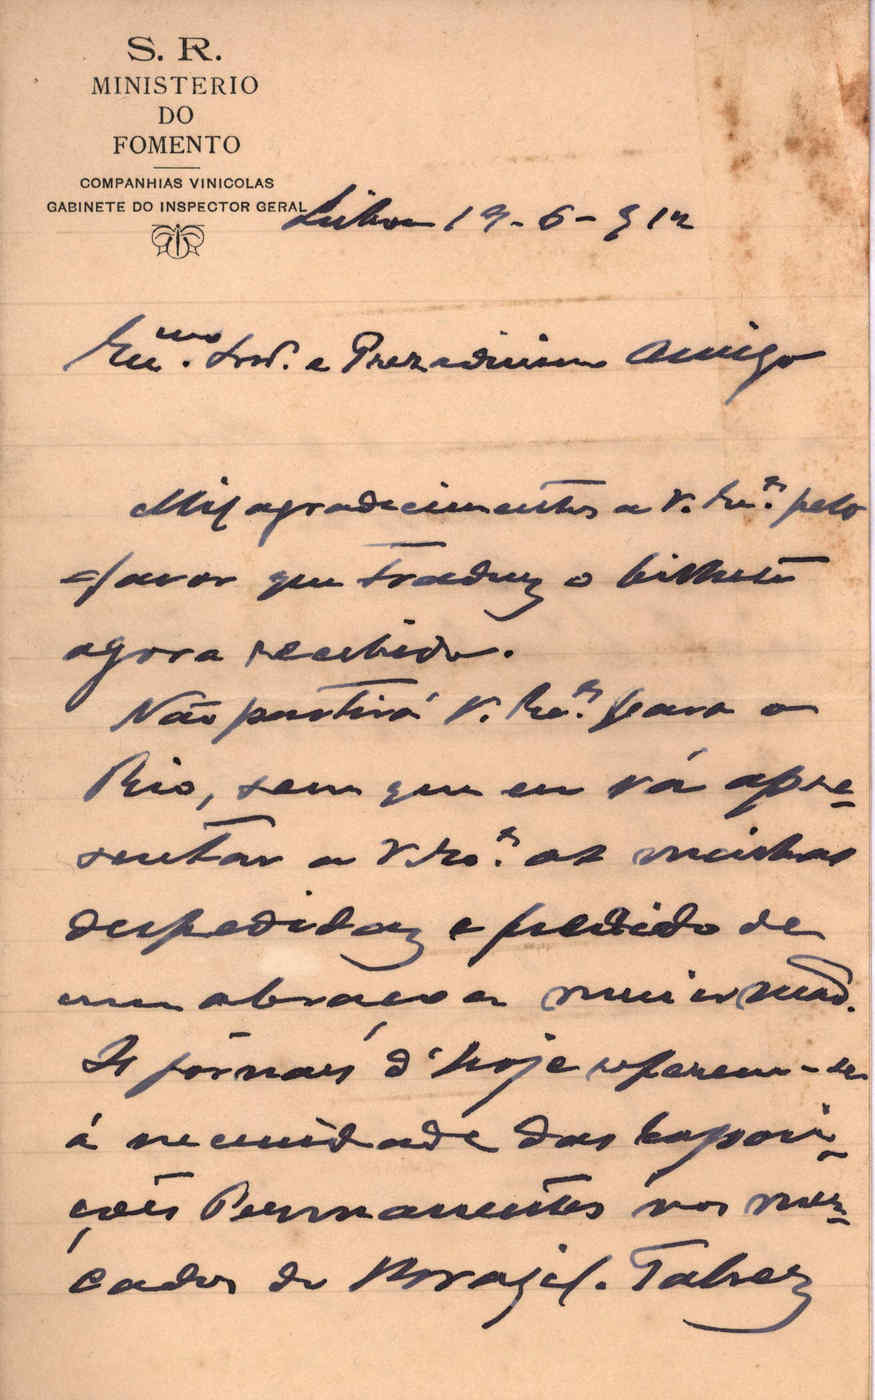 S. R.
MINISTERIO
DO
FOMENTO
COMPANHIAS VINICOLAS
GABINETE DO INSPECTOR GERAL
Lisboa 19-6-912
Exmo. Snr. e Prezadissimo Amigo
Mil agradecimentos a V. Exa. pelo
favor que traduz o bilhete
agora recebido.
Não partirá V. Exa. para o
Rio, sem que eu vá apre-
sentar a V. Exa. as minhas
despedidas e pedido de
um abraço a meu irmão.
Os jornais d'hoje referem-se
á necessidade das Exposi-
ções Permanentes nos mer-
cados do Brazil. Talvez